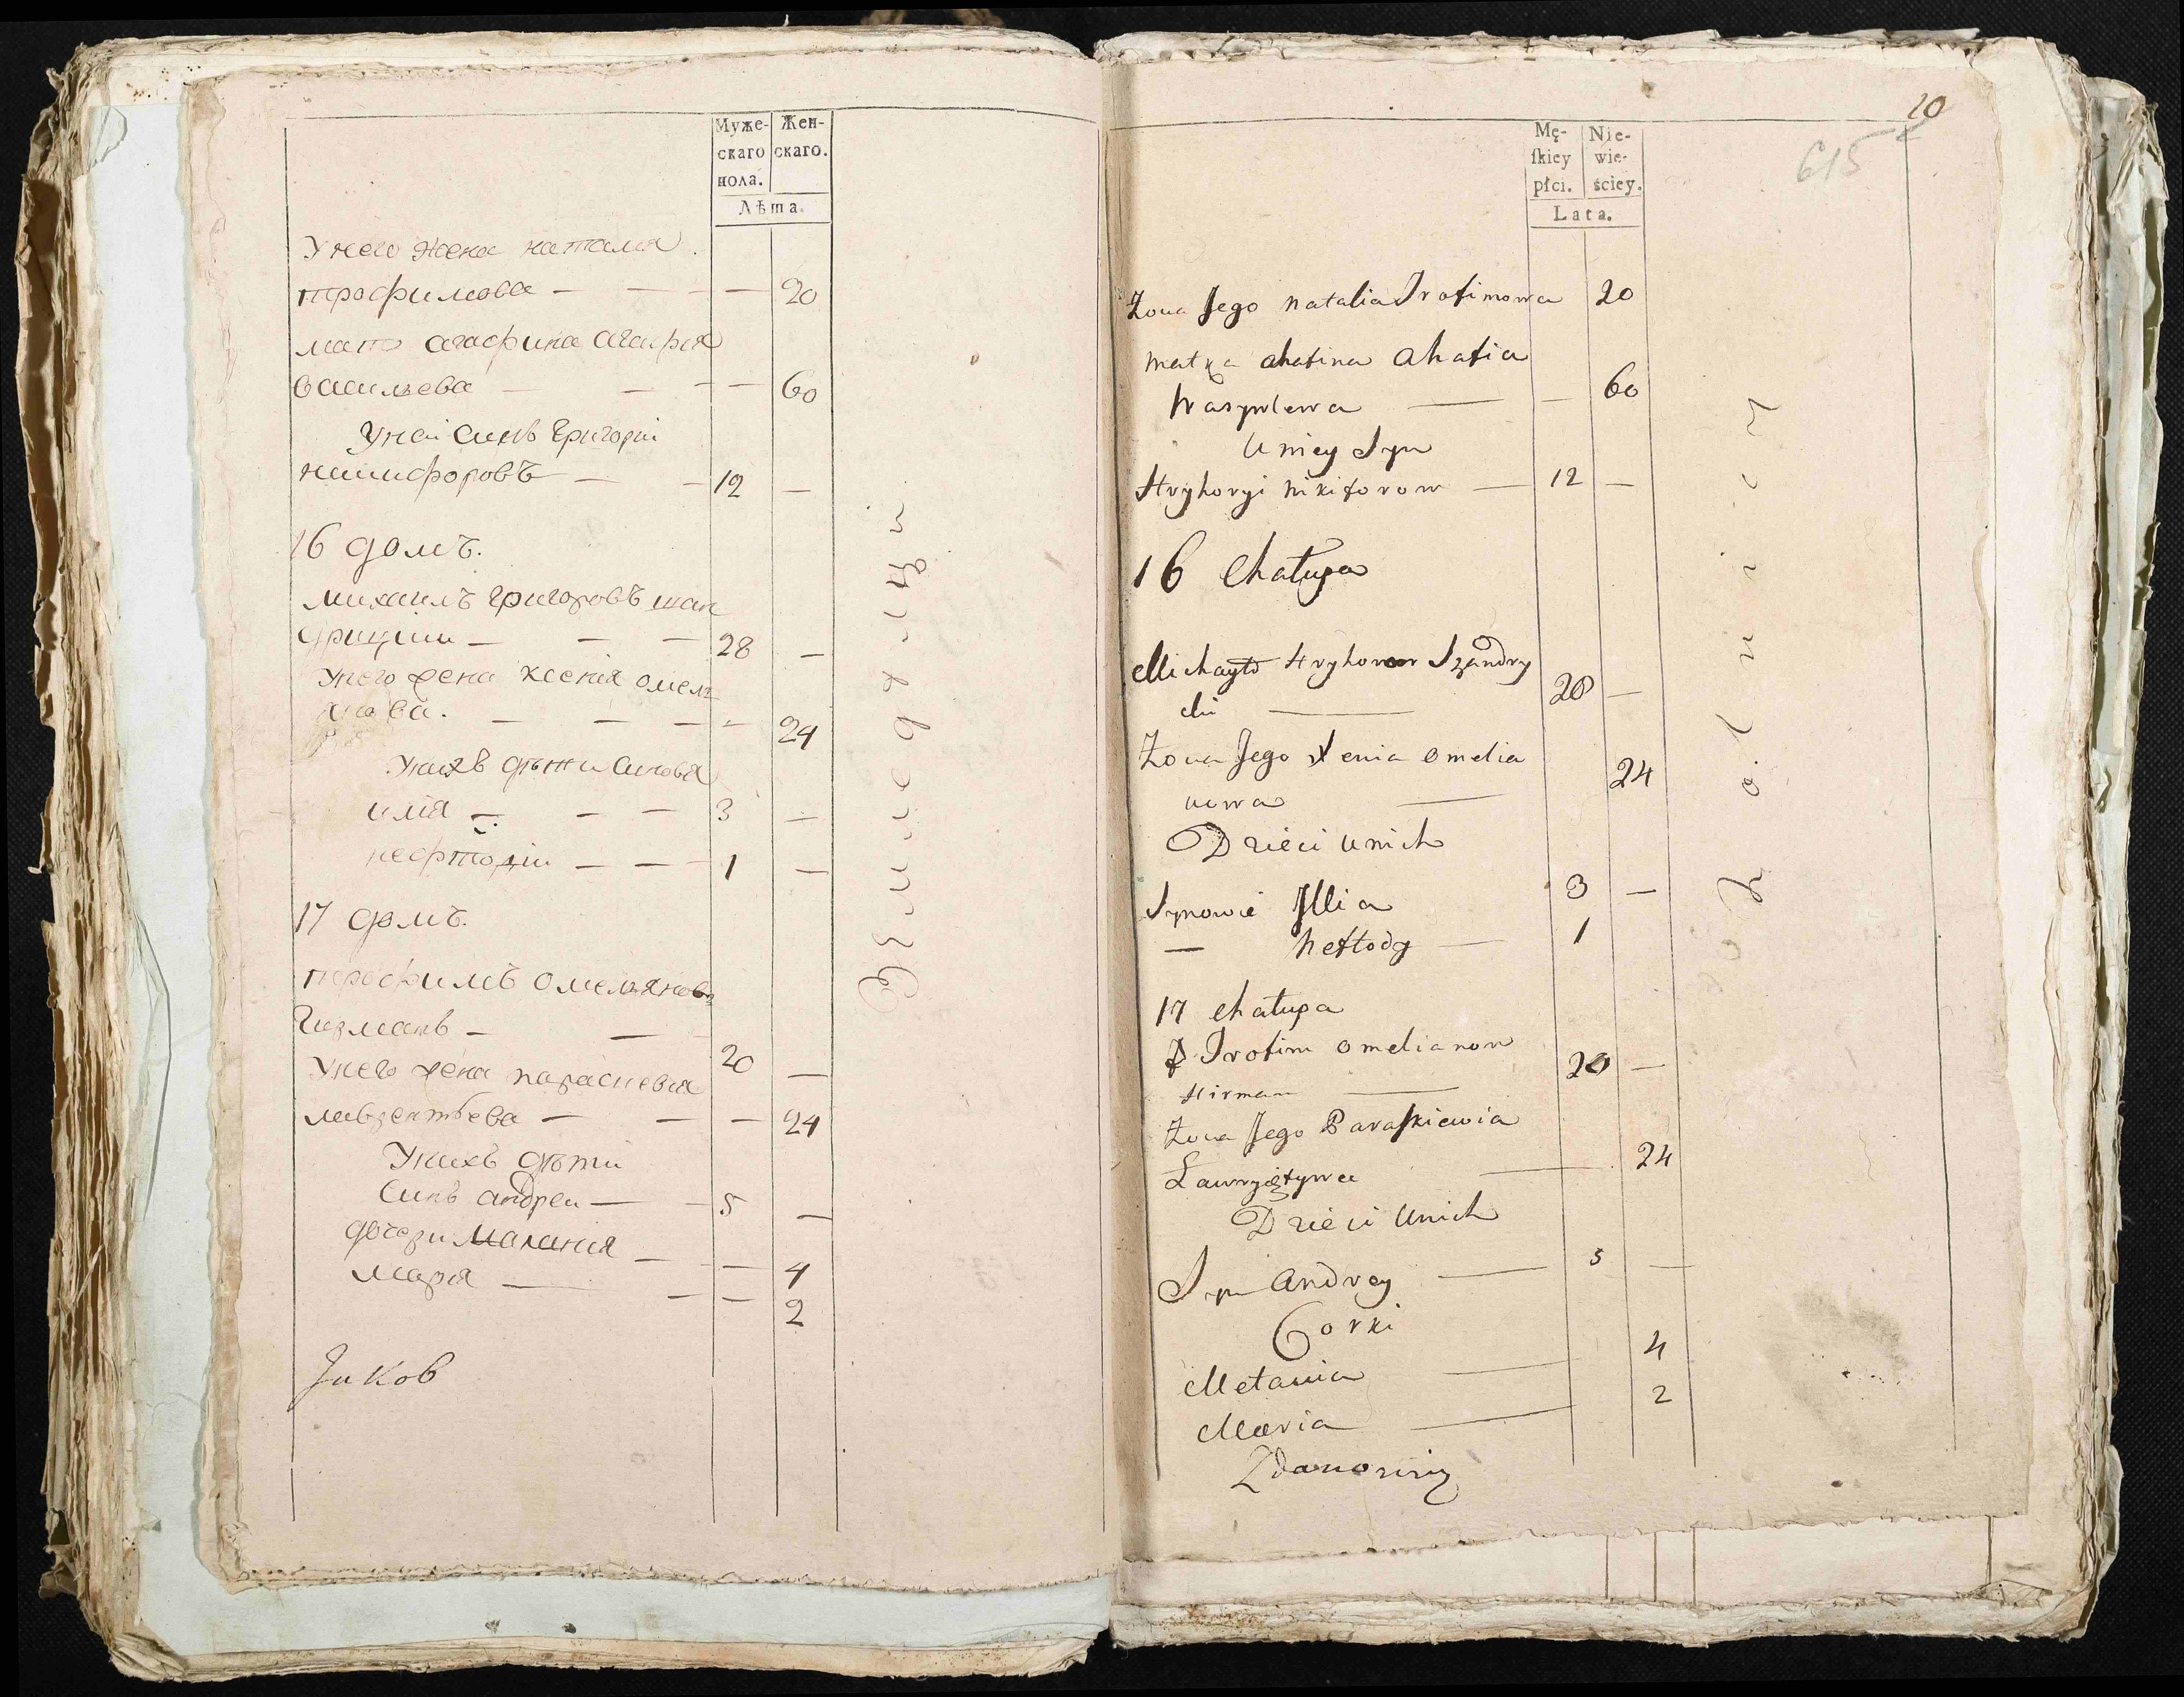 Муже- Жен-
скаго скаго.
пола.
Лѣта.
У него жена наталия
трофимова — — — 20
мать агафина агафия
васильева — — — 60
У неi синъ григориi
никифоровъ — — 12 —
16 домъ.
михаилъ григоровъ шан
дрициi — — — 28 —
У него жена ксения омел
янова. — — — — 24
У нихъ дѣти синовья
илiя — — — 3 —
нефтодiи — — — 1 —
17 домъ.
трофимъ омельяновъ
гизманъ — — 20 —
У него жена параскевия
лавреятьева — — — 24
У нихъ дѣти
синъ андреи — — 5 —
дочери маланiя — — 4
марiя — — — 2
Jakob
20
615
Mę- Nie-
ſkiey wie-
płci. ściey.
Lata.
Żona Jego natalia Trofimowa 20
matka ahafina ahafia
Wasywlewa — — 60
U niey Syn
Hryhoryi nikiforow — 12 —
16 Chałupa
Michayło Hryhorow Szandry
cki — 28 —
Żona Jego Xenia omelia
nowa — 24
Dzieci u nich
Synowie Illia 3 —
— Neftody — 1
17 chałupa
Trofim omelianow
Hirman — 20 —
Żona Jego Paraſkiewia
Lawryętywa — 24
Dzieci U nich
Syn Andrey — 5 —
Corki
Melania — 4
Maria — 2
Zdanowicz